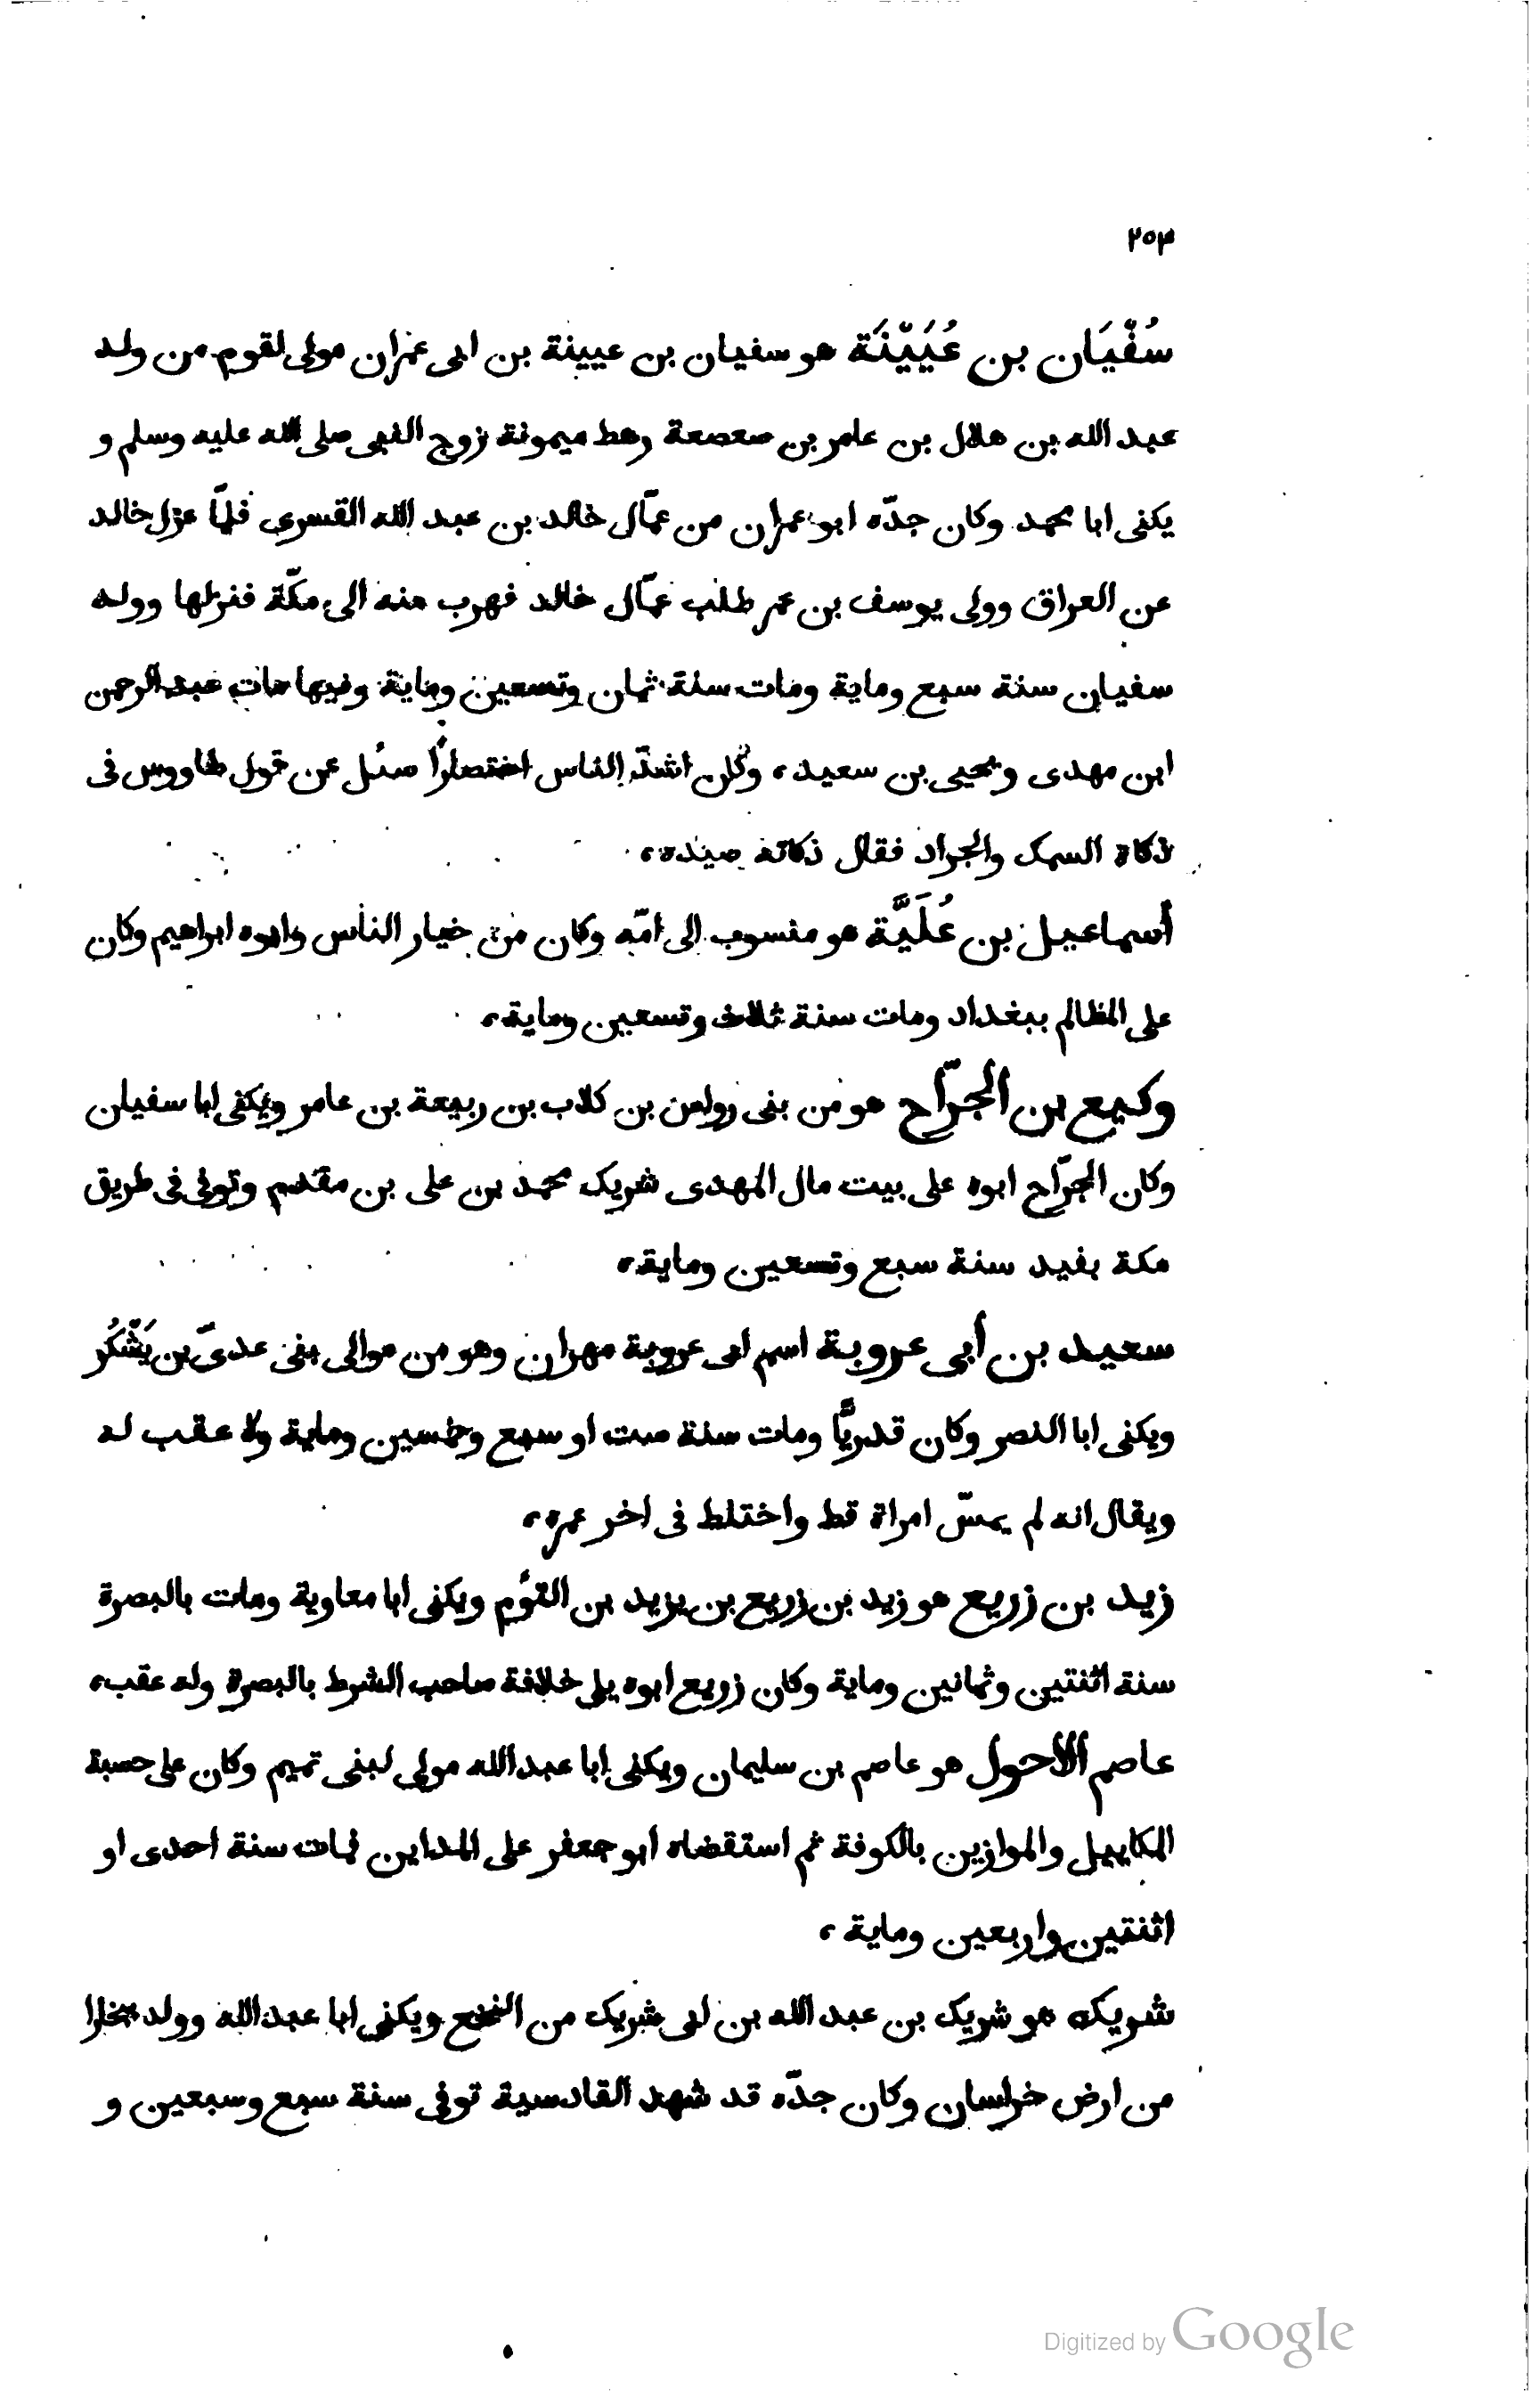 ٢٥٣
سُفْيَان بن عُيَيْنَة هو سفيان بن عيينة بن ابى عمران مولى لقوم من ولد
عبد الله بن هلال بن عامر بن صعصعة رهط ميمونة زوج النبى صلى الله عليه وسلم و
يكنى ابا محمد وكان جدّه ابو عمران من عمّال خالد بن عبد الله القسرى فلمّا عزل خالد
عن العراق وولى يوسف بن عمر طلب عمّال خالد فهرب منه الى مكّة فنزلها وولد
سفيان سنة سبع وماية ومات سنة ثمان وتسعين وماية وفيها مات عبد الرحمن
ابن مهدى ويحيى بن سعيد، وكان اشدّ الناس اختصارًا سئل عن قول طاووس فى
ذكاة السمك والجراد فقال ذكاته صيده،
أسماعيل بن عُلَيَّة هو منسوب الى امّه وكان من خيار الناس وابوه ابراهيم وكان
على المظالم ببغداد ومات سنة ثلاث وتسعين وماية،
وكيع بن الجرّاح هو من بنى رواس بن كلاب بن ربيعة بن عامر ويكنى ابا سفيان
وكان الجرّاح ابوه على بيت مال المهدى شريك محمد بن على بن مقدم وتوفى فى طريق
مكة بفيد سنة سبع وتسعين وماية،
سعيد بن أبى عروبة اسم ابى عروبة مهران وهو من موالى بنى عدىّ بن يَشْكُر
ويكنى ابا النصر وكان قدريًّا ومات سنة ست او سبع وخمسين وماية ولا عقب له
ويقال انه لم يمسّ امراة قط واختلط فى اخر عمره،
زيد بن زريع هو زيد بن زريع بن يزيد بن التؤم ويكنى ابا معاوية ومات بالبصرة
سنة اثنتين وثمانين وماية وكان زريع ابوه يلى خلافة صاحب الشرط بالبصرة وله عقب،
عاصم الاحول هو عاصم بن سليمان ويكنى ابا عبد الله مولى لبنى تميم وكان على حسبة
المكاييل والموازين بالكوفة ثم استقضاه ابو جعفر على المداين فمات سنة احدى او
اثنتين واربعين وماية،
شريك هو شريك بن عبد الله بن ابى شريك من النخع ويكنى ابا عبد الله وولد ببخارا
من ارض خراسان وكان جدّه قد شهد القادسية توفى سنة سبع وسبعين و
Digitized by Google